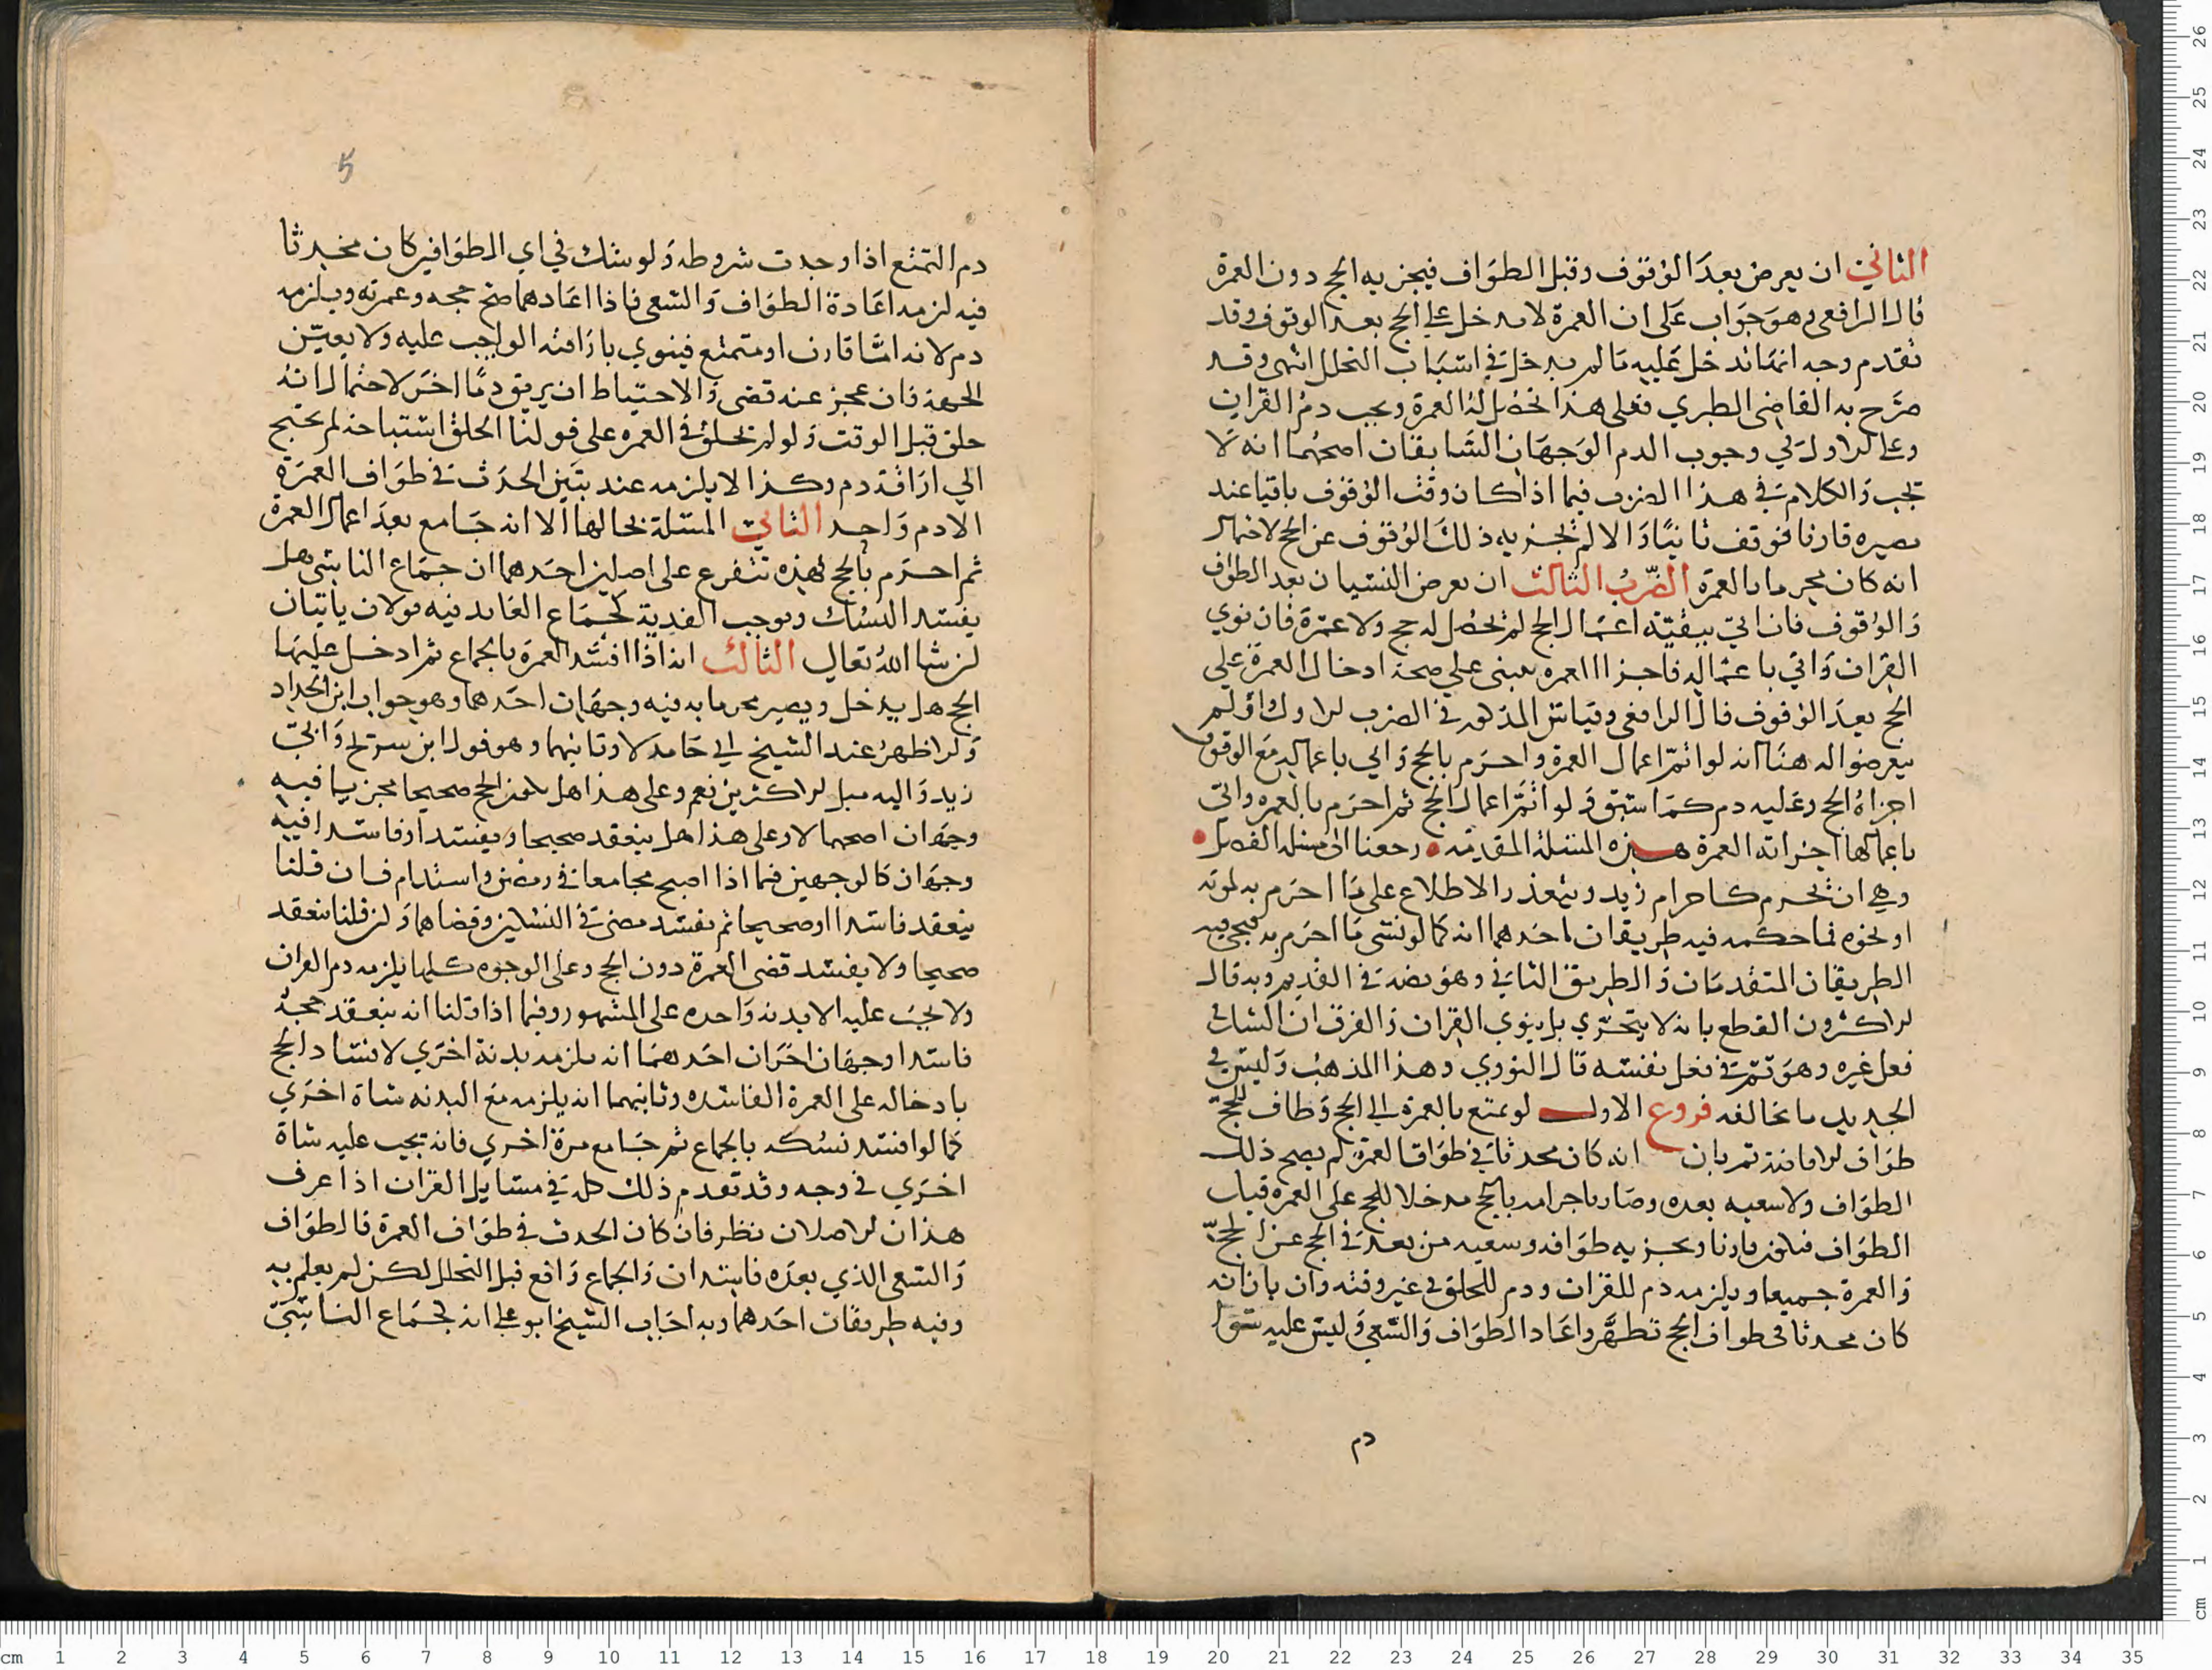 الثاني ان يعرض بعد الوقوف وقبل الطواف فيجزيه الحج دون العمرة
قال الرافعي وهو جواب على ان العمرة لا تدخل على الحج بعد الوقوف وقد
تقدم وجه انها تدخل عليه ما لم يدخل في اسباب التحلل انتهى وقد
صرح به القاضي الطبري فعلى هذا تحصل له العمرة ويجب دم القران
وعلى الاول في وجوب الدم الوجهان السابقان اصحهما انه لا
يجب والكلام في هذا الضرب فيما اذا كان وقت الوقوف باقيا عند
مصيره قارنا فوقف ثانيا والا لم يجزيه ذلك الوقوف عن الحج لاحتمال
انه كان محرما بالعمرة الضرب الثالث ان يعرض النسيان بعد الطواف
والوقوف فان اتى ببقية اعمال الحج لم يحصل له حج ولا عمرة فان نوي
القران واتي باعماله فاجزاا العمرة يبنى على صحة ادخال العمرة على
الحج بعد الوقوف قال الرافعي وقياس المذكور في الضرب الاول ولم
يتعرضوا له هنا انه لو اتم اعمال العمرة واحرم بالحج واتي باعماله مع الوقوف
اجزاه الحج وعليه دم كما سبق ولو اتم اعمال الحج ثم احرم بالعمره واتى
باعمالها اجزاته العمرة هذه المسئلة المقدمة رجعنا الى مسئلة الفصل
وهي ان يحرم كاحرام زيد ويتعذر الاطلاع على ما احرم به لموته
او نحوه فما حكمه فيه طريقان احدهما انه كما لو نسى ما احرم به فيجي فيه
الطريقان المتقدمان والطريق الثاني وهو نصه في القديم وبه قال
الاكثرون القطع بانه لا يتحري بل ينوي القران والفرق ان الشك في
فعل غيره وهو ثم في فعل نفسه قال النووي وهذا المذهب وليس في
الجديد ما يخالفه فروع الاول لو تمتع بالعمرة الى الحج وطاف للحج
طواف الافاضة ثم بان انه كان محدثا في طواف العمرة لم يصح ذلك
الطواف ولا سعيه بعده وصار باحرامه بالحج مدخلا للحج على العمره قبل
الطواف فيكون قارنا ويجزيه طوافه وسعيه من بعد في الحج عن الحج
والعمرة جميعا ويلزمه دم للقران ودم للحلق في غير وقته وان بان انه
كان محدثا في طواف الحج تطهر واعاد الطواف والسعي وليس عليه سوا
دم
5
دم التمتع اذا وجدت شروطه ولو شك في اي الطوافين كان محدثا
فيه لزمه اعادة الطواف والسعي فاذا اعادهما صح حجه وعمرته ويلزمه
دم لانه اما قارن او متمتع فينوي باراقته الواجب عليه ولا يعين
الجهة فان عجز عنه قضى والاحتياط ان يريق دما اخر لاحتمال انه
حلق قبل الوقت ولو لم يحلق في العمره على قولنا الحلق استباحة لم يحتج
الي اراقة دم وكذا لا يلزمه عند تبين الحدث في طواف العمرة
الا دم واحد الثاني المسئلة بحالها الا انه جامع بعد اعمال العمرة
ثم احرم بالحج فهذه تتفرع على اصلين احدهما ان جماع الناسي هل
يفسد النسك ويوجب الفدية كجماع العامد فيه قولان ياتيان
ان شا الله تعالي الثالث انه اذا افسد العمرة بالجماع ثم ادخل عليها
الحج هل يدخل ويصير محرما به فيه وجهان احدهما وهو جواب ابن الحداد
والاظهر عند الشيخ ابي حامد لا وثانيهما وهو قول ابن سريج وابي
زيد واليه ميل الاكثرين نعم وعلى هذا هل يكون الحج صحيحا مجزيا فيه
وجهان اصحهما لا وعلى هذا هل ينعقد صحيحا ويفسد او فاسدا فيه
وجهان كالوجهين فيما اذا اصبح مجامعا في رمضن واستدام فان قلنا
ينعقد فاسدا او صحيحا ثم يفسد مضى في النسكين وقضاهما وان قلنا ينعقد
صحيحا ولا يفسد قضى العمرة دون الحج وعلى الوجوه كلها يلزمه دم القران
ولا يجب عليه الا بدنه واحده على المشهور وفيما اذا قلنا انه ينعقد حجه
فاسدا وجهان اخران احدهما انه يلزمه بدنة اخري لافساد الحج
بادخاله على العمرة الفاسده وثانيهما انه يلزمه مع البدنه شاة اخري
كما لو افسد نسكه بالجماع ثم جامع مرة اخري فانه يجب عليه شاة
اخري في وجه وقد تقدم ذلك كله في مسايل القران اذا عرف
هذان الاصلان نظر فان كان الحدث في طواف العمرة فالطواف
والسعي الذي بعده فاسدان والجماع واقع قبل التحلل لكن لم يعلم به
وفيه طريقان احدهما وبه اجاب الشيخ ابو علي انه كجماع الناسي